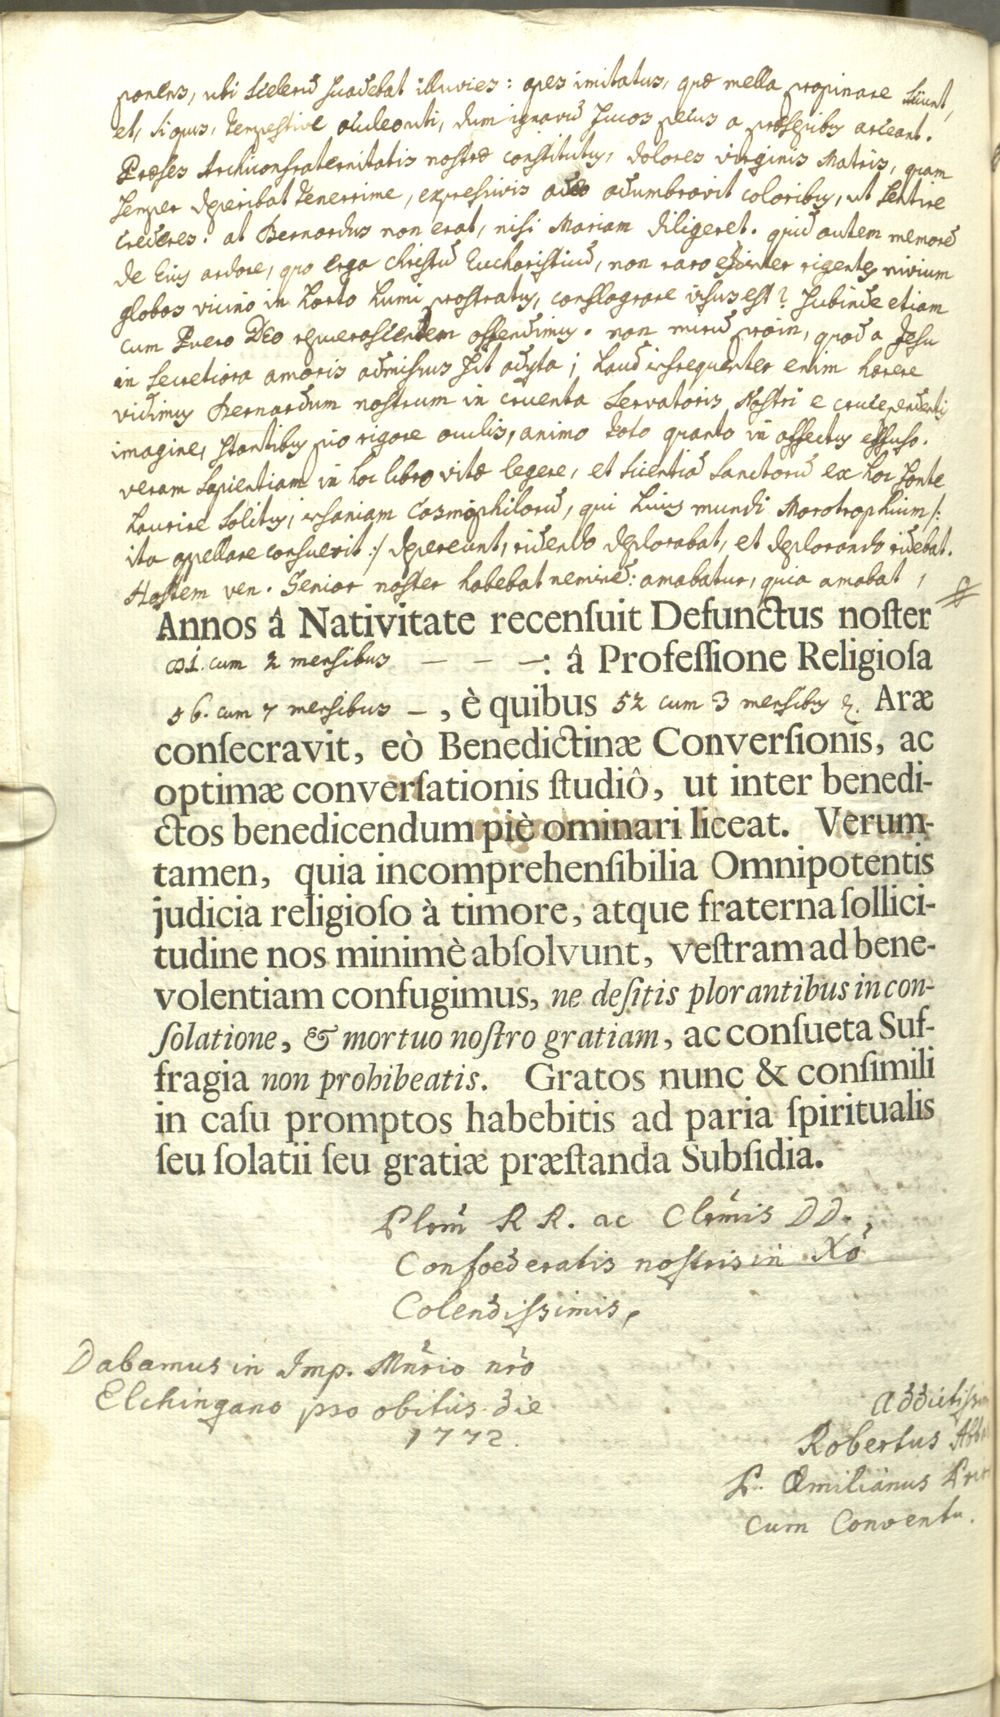 ponens, ubi scelerū suadebat illuvies: apes imitatus, quæ mella propinare sciunt,
et, si quis, tempestive aculeo uti, dum ignavū fucos pecus a præsepibꝯ arceant.
Præses Archiconfraternitatis nostræ constitutꝯ, dolores virginis Matris, quam
semper deperibat tenerrime, expressivis adeo adumbravit coloribꝯ, ut sentire
crederes: at Bernardus non erat, nisi Mariam diligeret. quid autem memorē
de Ejus ardore, quo erga Christū Eucharisticū, non raro inter rigentes nivium
globos vicino in horto humi prostratꝯ, conflagrare visus est? Subinde etiam
cum Puero Deo repuerascentem offendimꝯ. non mirū proin, quod a Jesu
in secretiora amoris admissus sit adyta; haud infrequenter enim hærere
vidimꝯ Bernardum nostrum in cruenta Servatoris Nostri e cruce pendentis
imagine, stantibꝯ pio rigore oculis, animo toto quanto in affectꝯ effuso.
veram sapientiam in hoc libro vitæ legere, et scientiā Sanctorū ex hoc fonte
haurire solitꝯ, insaniam Cosmophilorū, qui hujꝯ mundi Morotrophium /:
ita appellare consuevit :/ depereunt, ridendo deplorabat, et deplorando ridebat.
Hostem ven. Senior noster habebat neminē: amabatur, quia amabat,
Annos â Nativitate recenſuit Defunctus noſter
81. cum 2 mensibus — — —: â Profeſſione Religioſa
56. cum 7 mensibus —, è quibus 52 cum 3 mensibꝯ Aræ
conſecravit, eò Benedictinæ Converſionis, ac
optimæ converſationis ſtudiô, ut inter benedi-
ctos benedicendum piè ominari liceat. Verum-
tamen, quia incomprehenſibilia Omnipotentis
judicia religioſo à timore, atque fraterna ſollici-
tudine nos minimè abſolvunt, veſtram ad bene-
volentiam confugimus, ne deſitis plorantibus in con-
ſolatione, & mortuo noſtro gratiam, ac conſueta Suf-
fragia non prohibeatis. Gratos nunc & conſimili
in caſu promptos habebitis ad paria ſpiritualis
ſeu ſolatii ſeu gratiæ præſtanda Subſidia.
Plrm̄ R R. ac Clem̄is DD.,
Confoederatis nostris in Xō
Colendissimis,
Dabamus in Imp. Mn̄rio nr̄o
Elchingano pso obitus die
1772.
Addictissim
Robertus Abb
P. Æmilianus Prior
cum Conventu.